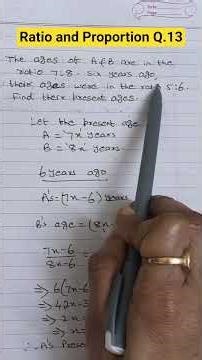 Ratio and Proportion Q.13
The ages of A & B are in the
ratio 7:8. six years ago,
there ages were in the ratio 5:6.
Find these present ages.
Let the present age
A = '7x' years
B = '8x' years
6 years ago
A's = (7x-6) years
B's age = (8x-
7x-6
8x-6
⇒ 6(7x-6
⇒ 42x-3
⇒ 2x =
⇒ x =
∴ A's Present